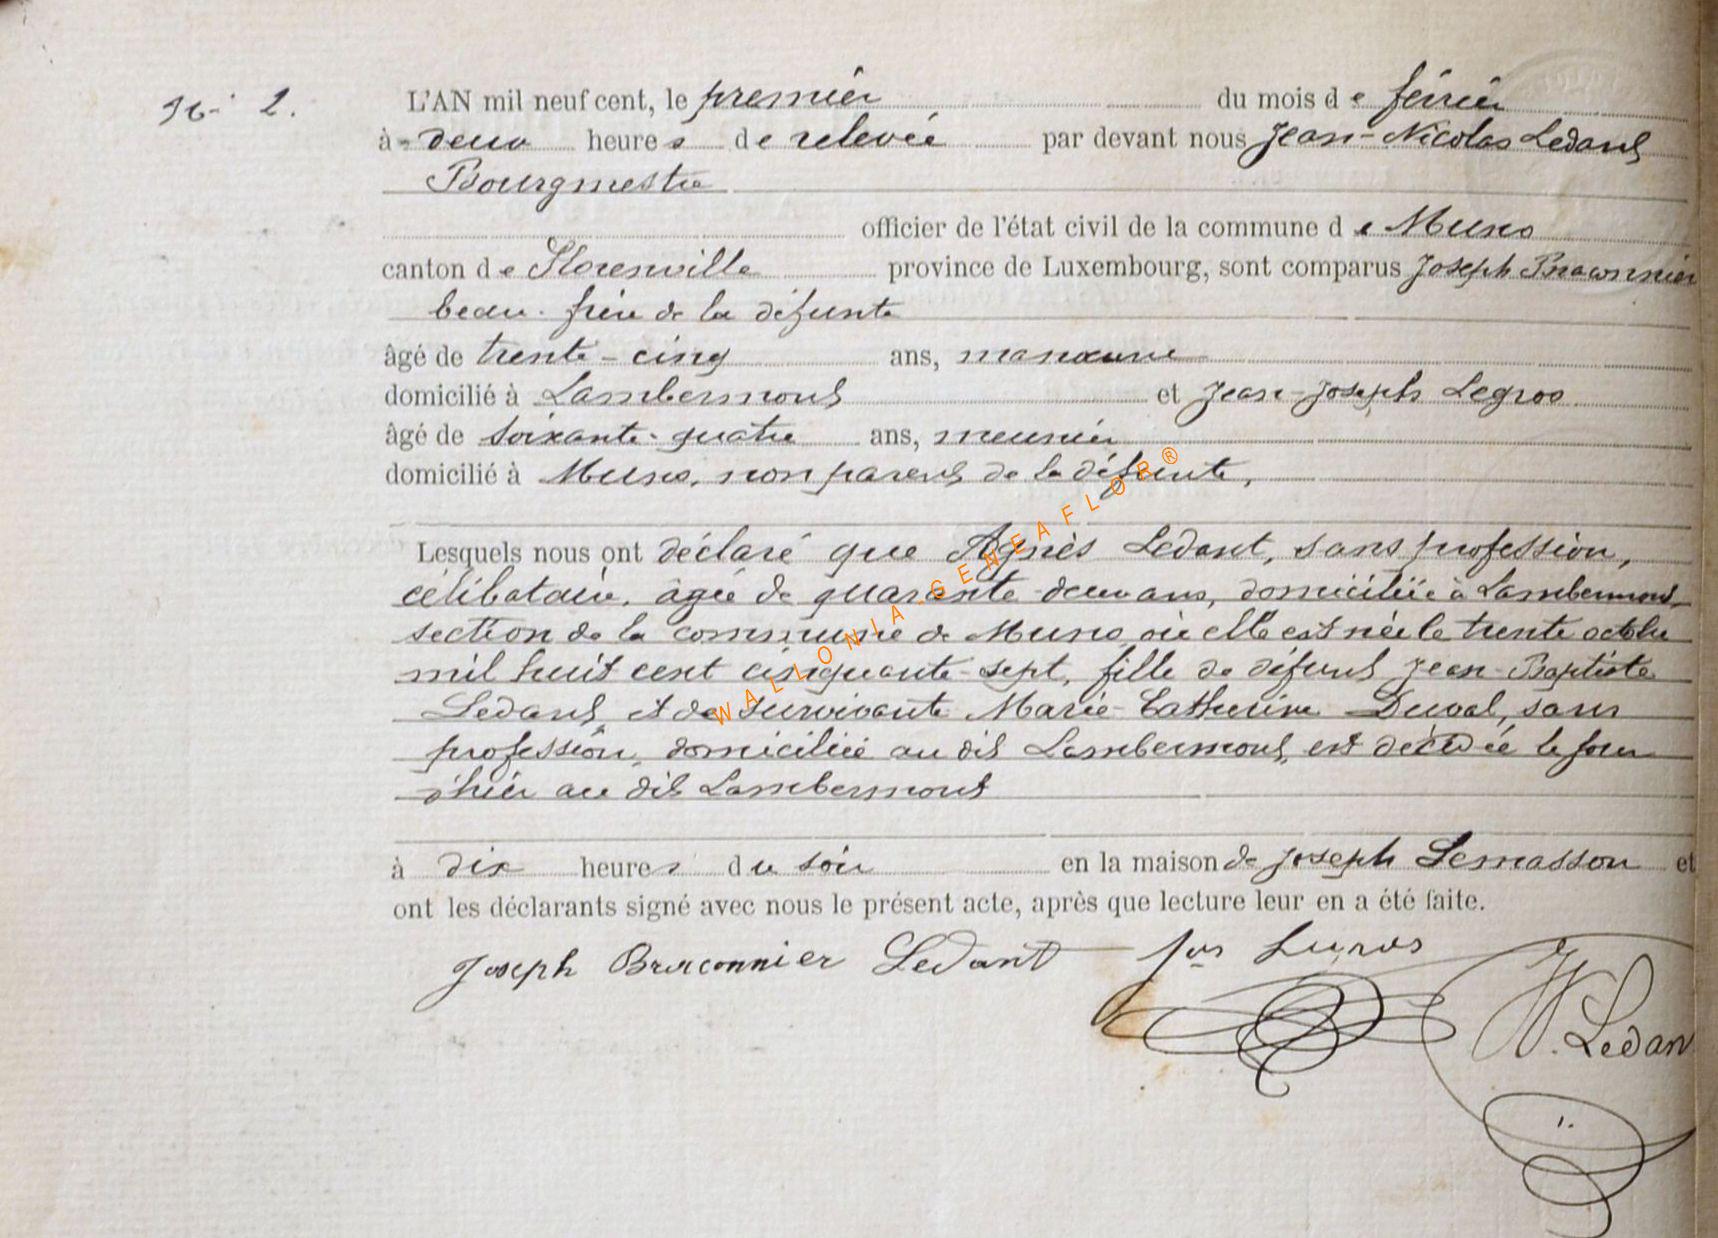 N° 2.
L'AN mil neuf cent, le premier du mois de février
à deux heures de relevée par devant nous Jean-Nicolas Ledant
Bourgmestre
officier de l'état civil de la commune de Muno
canton de Florenville province de Luxembourg, sont comparus Joseph Braconnier
beau-frère de la défunte
âgé de trente-cinq ans, manœuvre
domicilié à Lambermont et Jean-Joseph Legros
âgé de soixante-quatre ans, meunier
domicilié à Muno, non parent de la défunte,
Lesquels nous ont déclaré que Agnès Ledant, sans profession,
célibataire, âgée de quarante-deux ans, domiciliée à Lambermont,
section de la commune de Muno où elle est née le trente octobre
mil huit cent cinquante-sept, fille de défunt Jean-Baptiste
Ledant et de survivante Marie-Catherine Duval, sans
profession, domiciliée au dit Lambermont, est décédée le jour
d'hier au dit Lambermont
à dix heures du soir en la maison de Joseph Lemasson et
ont les déclarants signé avec nous le présent acte, après que lecture leur en a été faite.
Joseph Braconnier Ledant Jos Legros
N. Ledan
WALLONIA-GENEAFLOR®